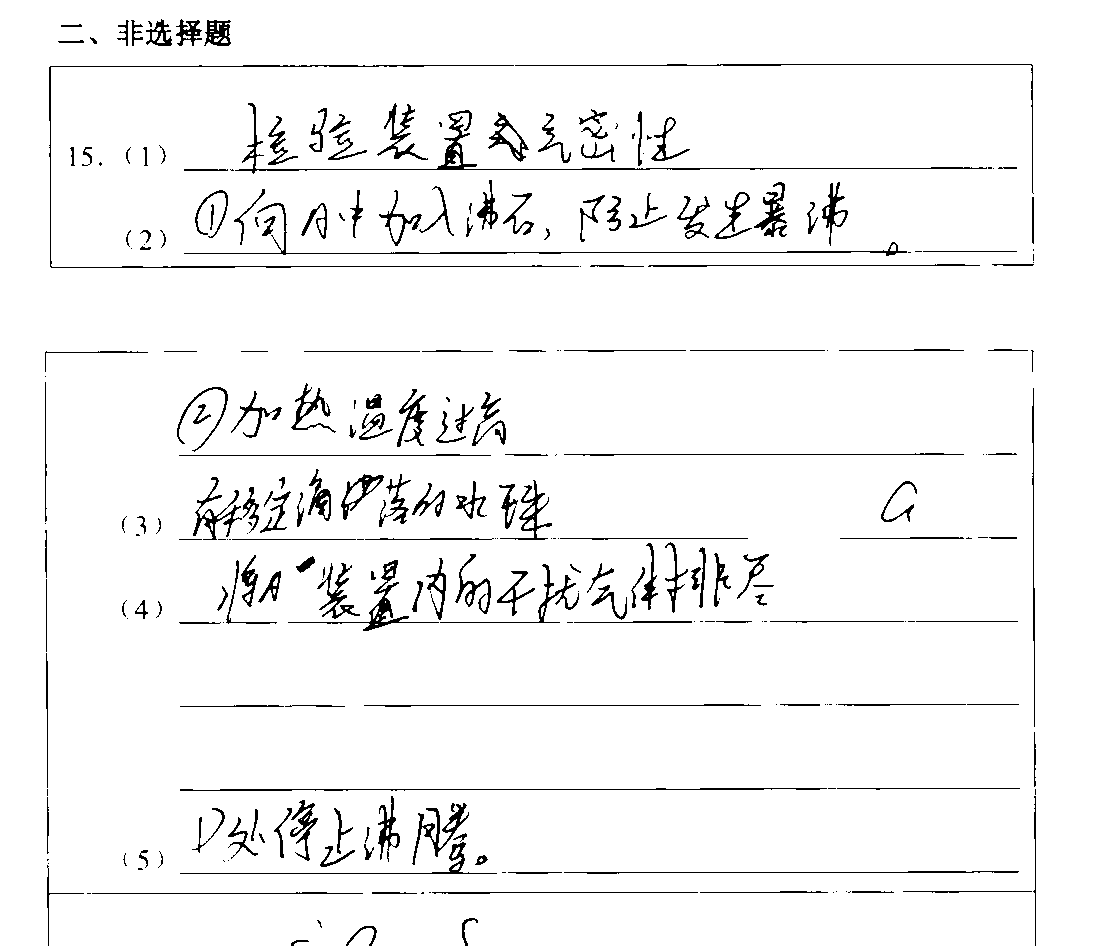 二、非选择题
15.(1) 检验装置气密性
(2) ①向A中加入沸石,防止发生暴沸。
②加热温度过高
(3) 有稳定滴落的水珠 G
(4) 装置内的干扰气体排尽
(5) D处停止沸腾。